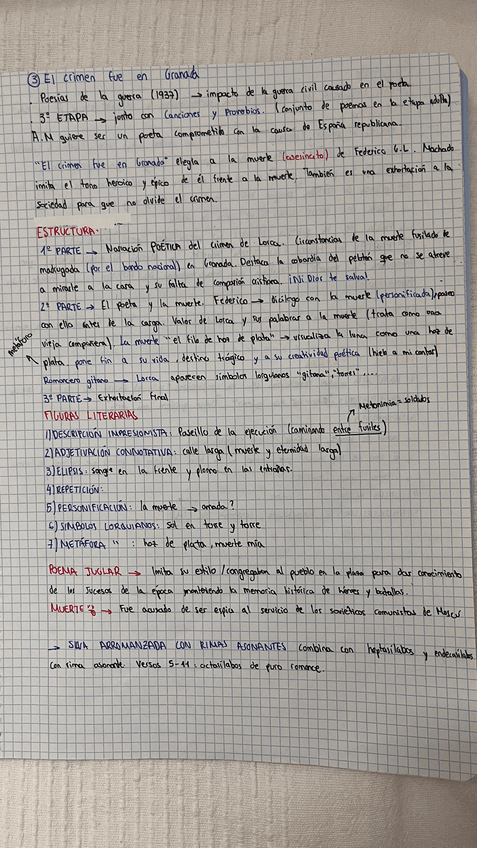 ③ El crimen fue en Granada
. Poesías de la guerra (1937) → impacto de la guerra civil causado en el poeta
. 3ª ETAPA → junto con Canciones y Proverbios. (conjunto de poemas en la etapa adulta)
A.M quiere ser un poeta comprometido con la causa de España republicana.
"El crimen fue en Granada" elegía a la muerte (asesinato) de Federico G.L. Machado
imita el tono heroico y épico de él frente a la muerte. También es una exhortación a la
sociedad para que no olvide el crimen.
ESTRUCTURA.
1ª PARTE → Narración POÉTICA del crimen de Lorca. Circunstancias de la muerte fusilado de
madrugada (por el bando nacional) en Granada. Destaca la cobardía del pelotón que no se atreve
a mirarle a la cara y su falta de compasión cristiana. ¡Ni Dios te salva!
2ª PARTE → El poeta y la muerte. Federico → diálogo con la muerte (personificada), paseo
con ella antes de la carga. Valor de Lorca y sus palabras a la muerte (trata como una
vieja compañera). La muerte "el filo de hoz de plata" → visualiza la luna como una hoz de
metáfora
plata, pone fin a su vida, destino trágico y a su creatividad poética (hielo a mi cantar)
Romancero gitano → Lorca aparecen símbolos lorquianos "gitana", "torres"....
3ª PARTE → Exhortación final
FIGURAS LITERARIAS
Metonimia = soldados
1) DESCRIPCIÓN IMPRESIONISTA: Paseíllo de la ejecución (caminando entre fusiles)
2) ADJETIVACIÓN CONNOTATIVA: calle larga (muerte y eternidad larga)
3) ELIPSIS: sangre en la frente y plomo en las entrañas.
4) REPETICIÓN:
5) PERSONIFICACIÓN: la muerte → amada?
6) SÍMBOLOS LORQUIANOS: Sol en torre y torre
7) METÁFORA " : hoz de placta, muerte mía
POEMA JUGLAR → Imita su estilo / congregaban al pueblo en la plaza para dar conocimiento
de los sucesos de la época manteniendo la memoria histórica de héroes y batallas.
MUERTE → Fue acusado de ser espía al servicio de los soviéticos comunistas de Moscú.
→ SILVA ARROMANZADA CON RIMAS ASONANTES combina con heptasílabos y endecasílabos
con rima asonante versos 5-11: octosílabos de puro romance.